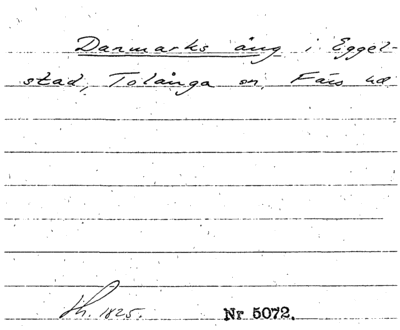 Danmarks äng i Eggel-
stad, Tolånga sn, Färs hd.
Lh. 1825. Nr 5072.